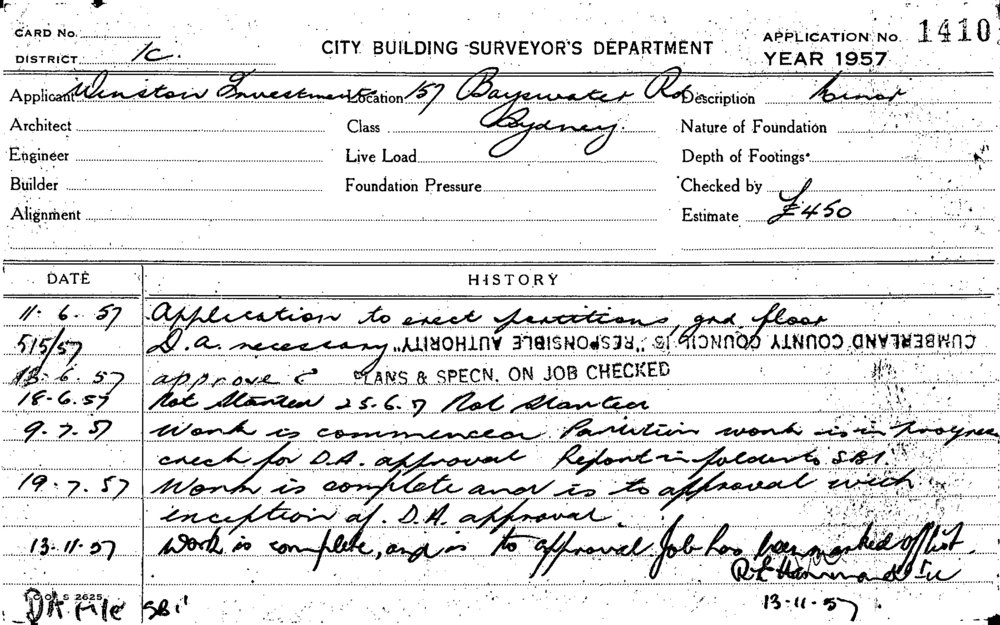 CARD No.
DISTRICT 1C.
CITY BUILDING SURVEYOR'S DEPARTMENT
APPLICATION No. 1410
YEAR 1957
Applicant Winston Investments Location 157 Bayswater Rd Description Minor
Architect Class Sydney. Nature of Foundation
Engineer Live Load Depth of Footings
Builder Foundation Pressure Checked by
Alignment Estimate £450
DATE HISTORY
11. 6. 57 Application to erect partitions, grd floor
5/5/57 D.A. necessary CUMBERLAND COUNTY COUNCIL IS "RESPONSIBLE AUTHORITY"
13. 6. 57 approve PLANS & SPECN. ON JOB CHECKED
18-6.57 Not Started 25-6.7 Not Started
9. 7. 57 Work is commenced Partition work is in progress
check for D.A. approval Report in folder to SBI.
19. 7. 57 Work is complete and is to approval with
exception of. D.A. approval.
13.11.57 Work is complete, and is to approval Job has been marked off list.
13-11-57
C. OF S 2625
DA File SBI